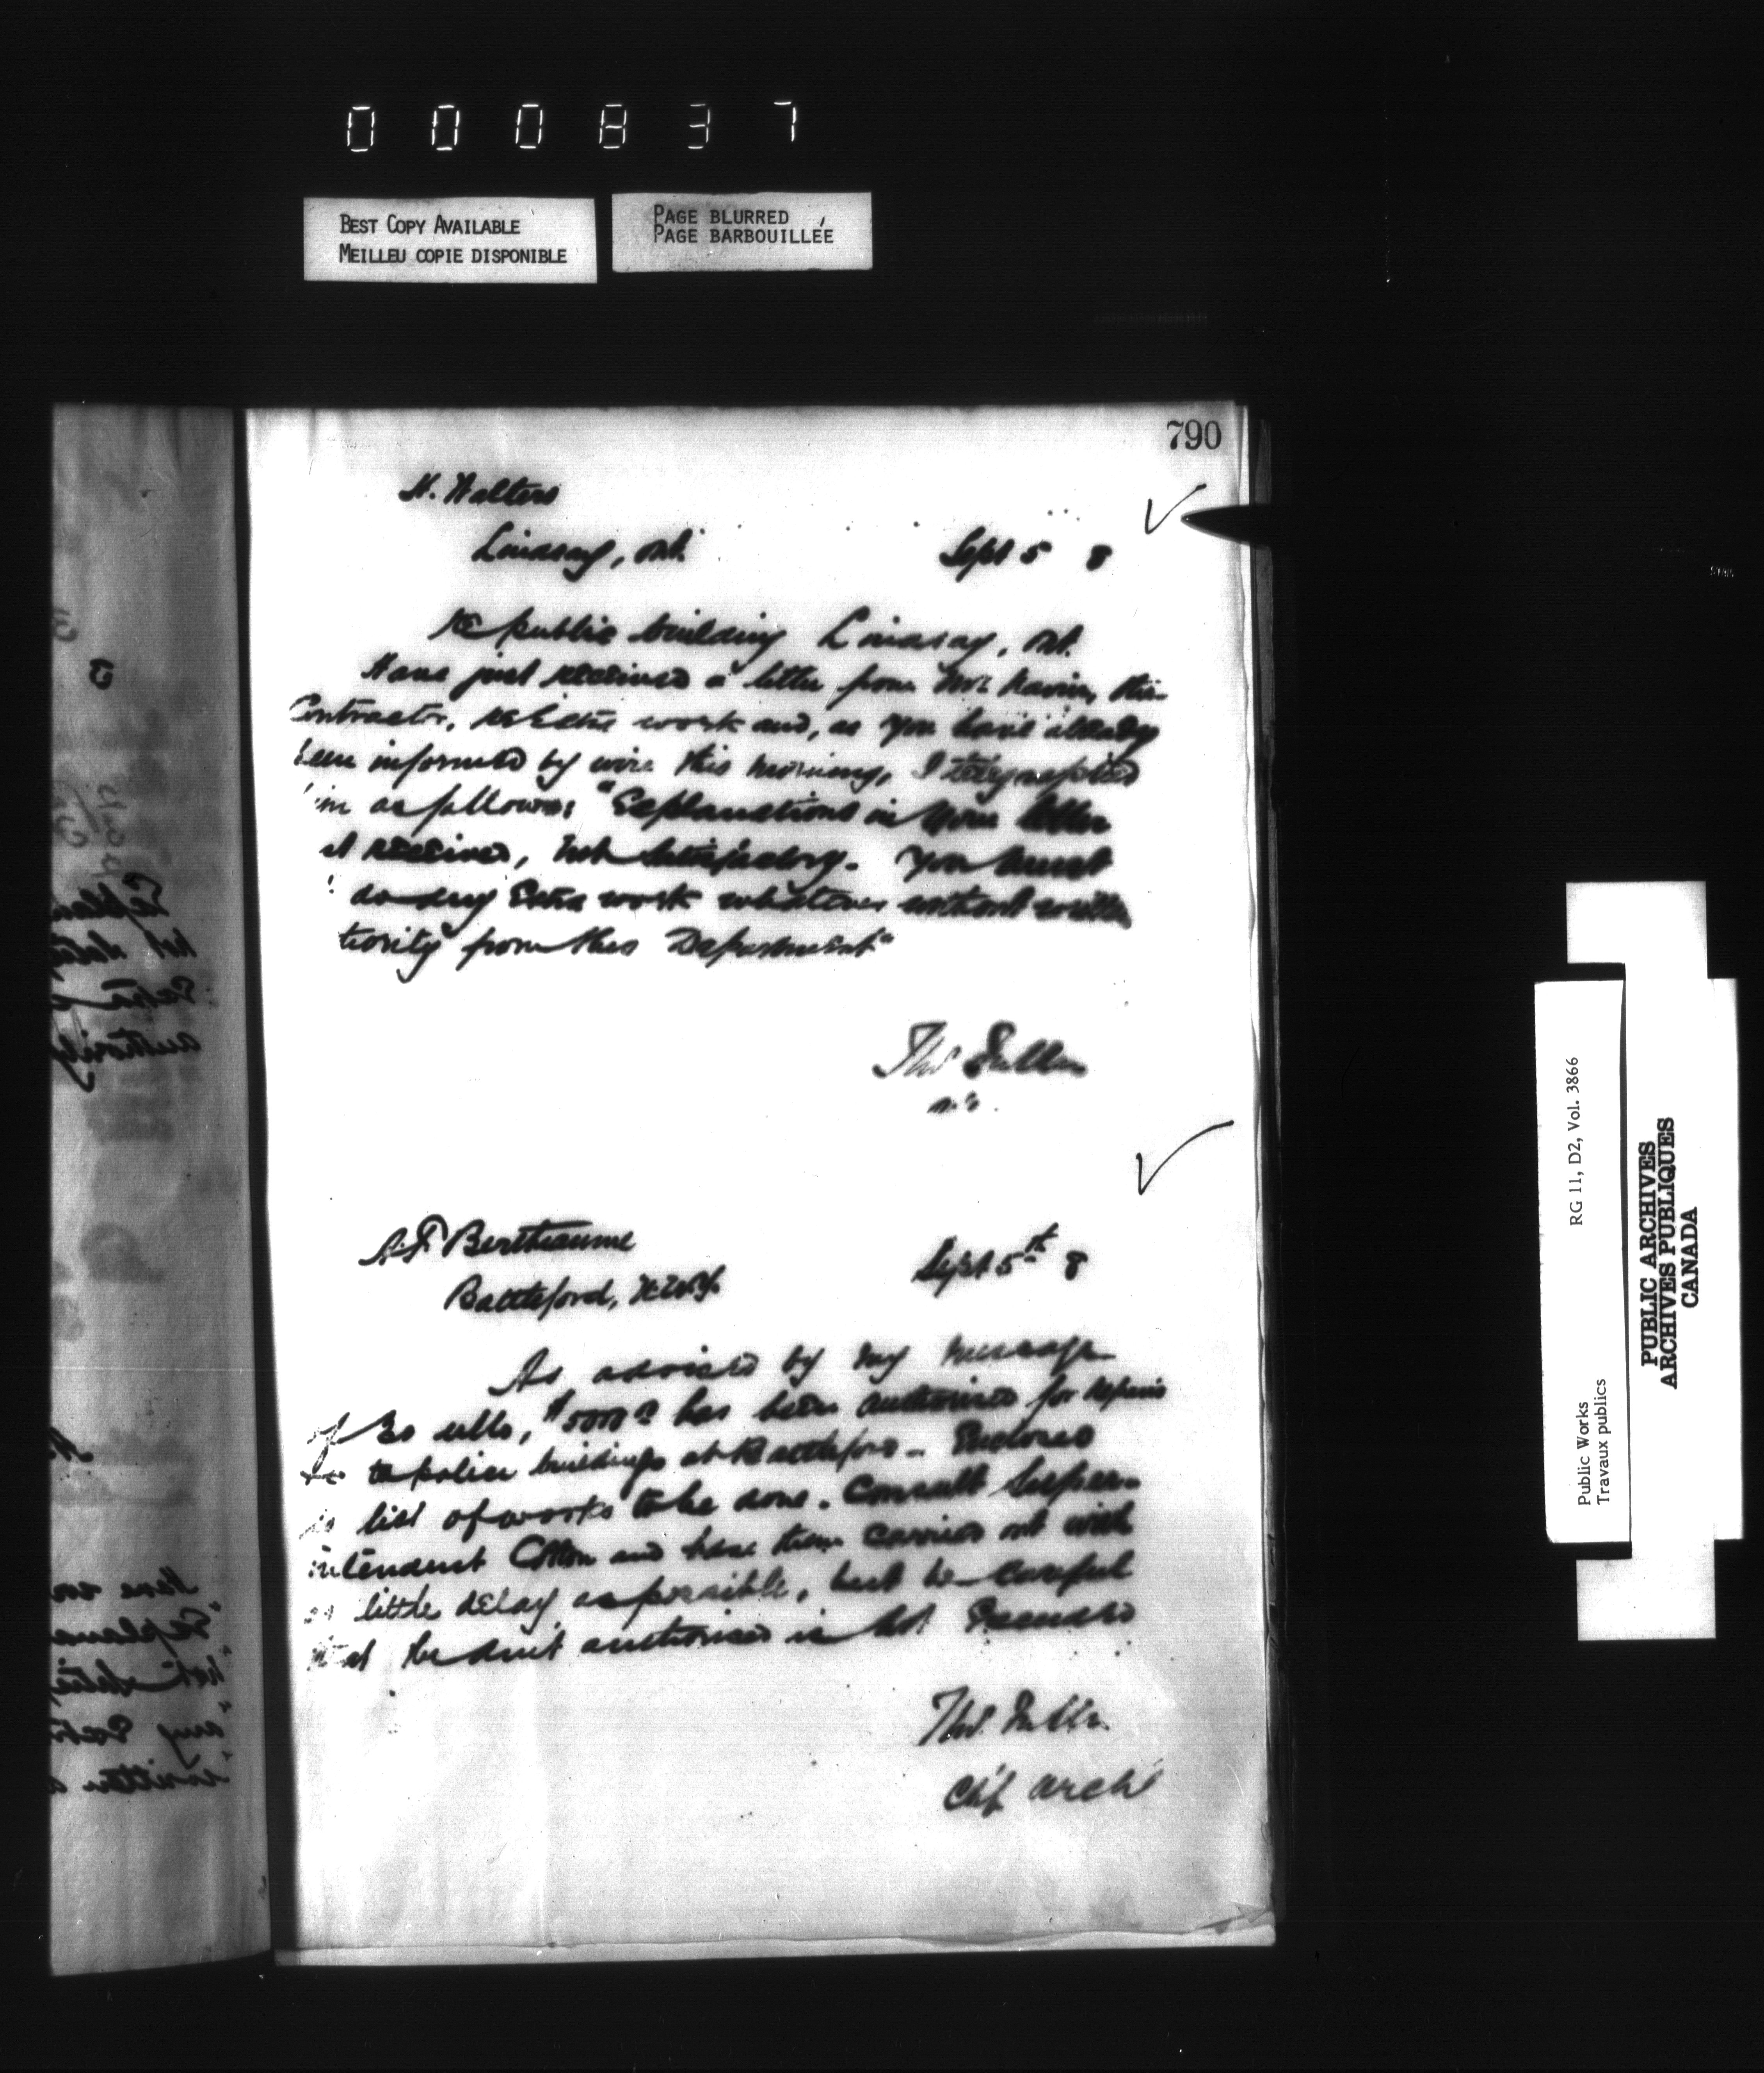 000837
BEST COPY AVAILABLE
MEILLEU COPIE DISPONIBLE
PAGE BLURRED
PAGE BARBOUILLÉE
790
Walters
Lindsay, Ont.
Sept 5 8
Re public building Lindsay, Ont.
Have just received a letter from Mr the
Contractor, re Extra work and, as you have already
been informed by wire this morning, I telegraphed
im as follows: "Explanations in your letter
st received, not satisfactory. You must
do any Extra work whatever without written
thority from this Department"
Thos Fuller
A. F. Berthiaume
Battleford, N.W.T.
Sept 5th 8
As advised by my message
of 30 ulto, $5000 has been authorised for repairs
to police buildings at Battleford. Enclosed
is list of works to be done. Consult Super-
intendent Cotton and have them carried out with
as little delay as possible, but be careful
that the am't authorised is not Exceeded
Thos. Fuller
Ch'f Arch't
RG 11, D2, Vol. 3866
Public Works
Travaux publics
PUBLIC ARCHIVES
ARCHIVES PUBLIQUES
CANADA